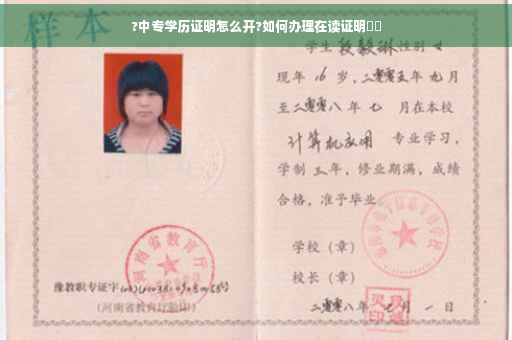 ?中专学历证明怎么开?如何办理在读证明▯▯
样本
学生 段毅琳 性别 女
现年 16 岁,二零零五年 九 月
至二零零八年 七 月在本校
计算机应用 专业学习,
学制 三 年,修业期满,成绩
合格,准予毕业
学校(章)
校长(章)
二零零八年 七 月 一 日
河南省教育厅
豫教职专证字
号
(河南省教育厅验印)